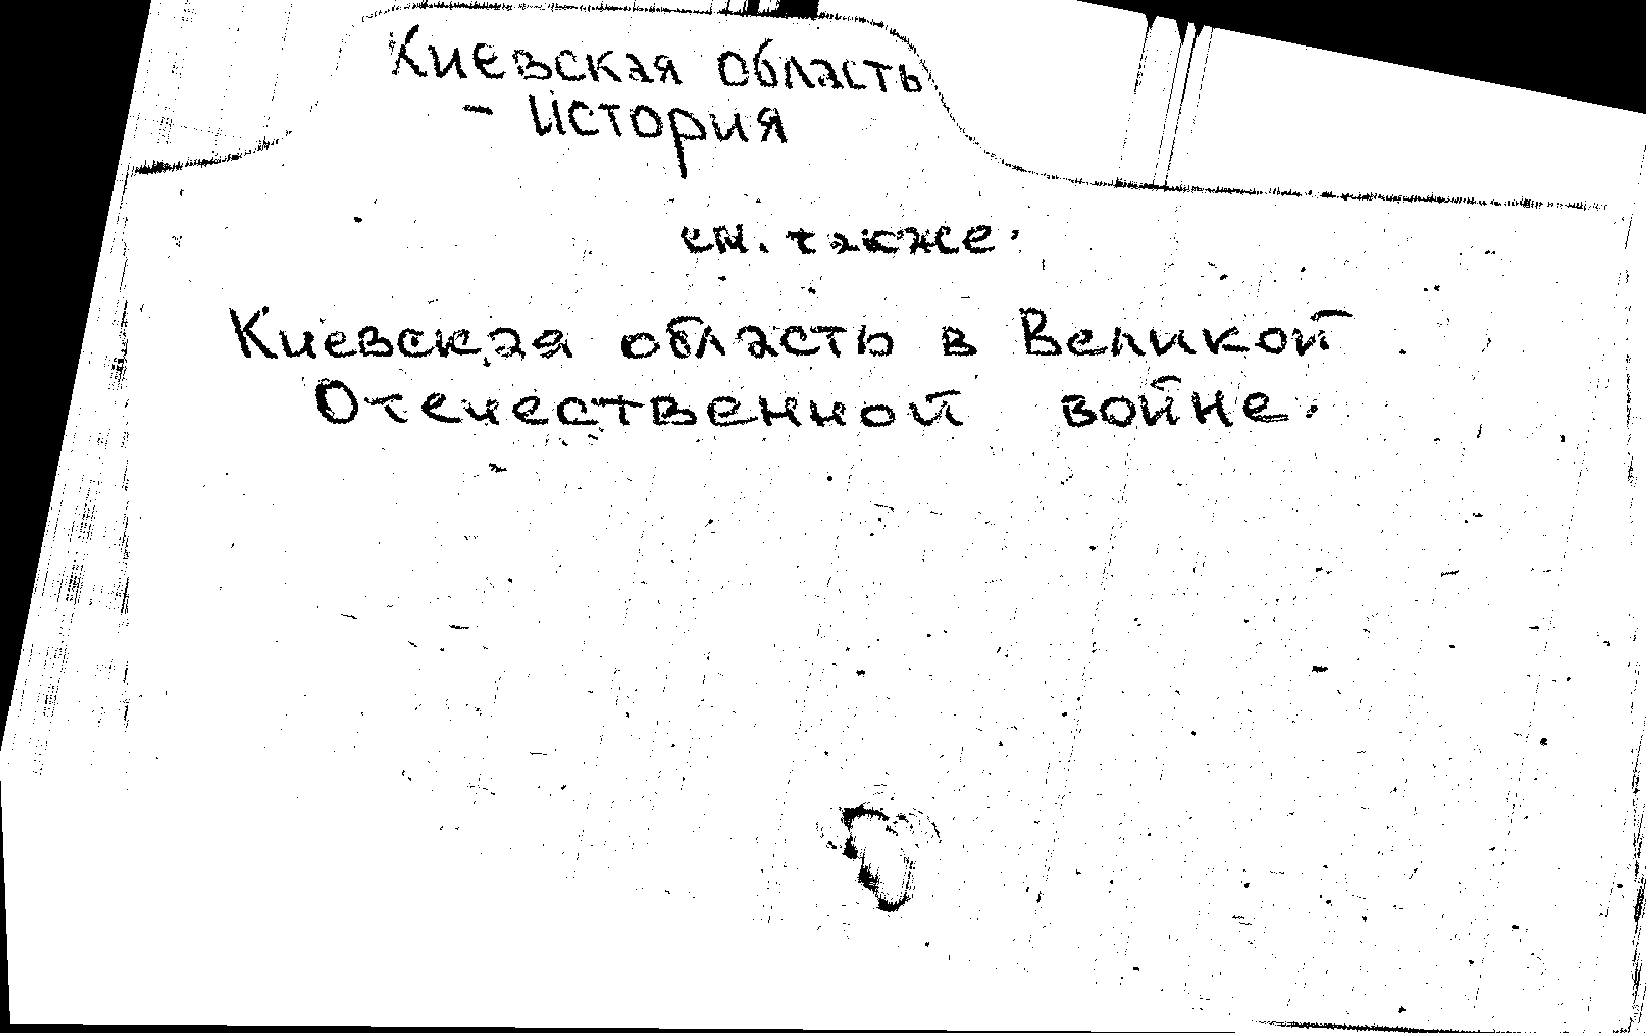 Киевская область
- История
см. также.
Киевская область в Великой
Отечественной войне.